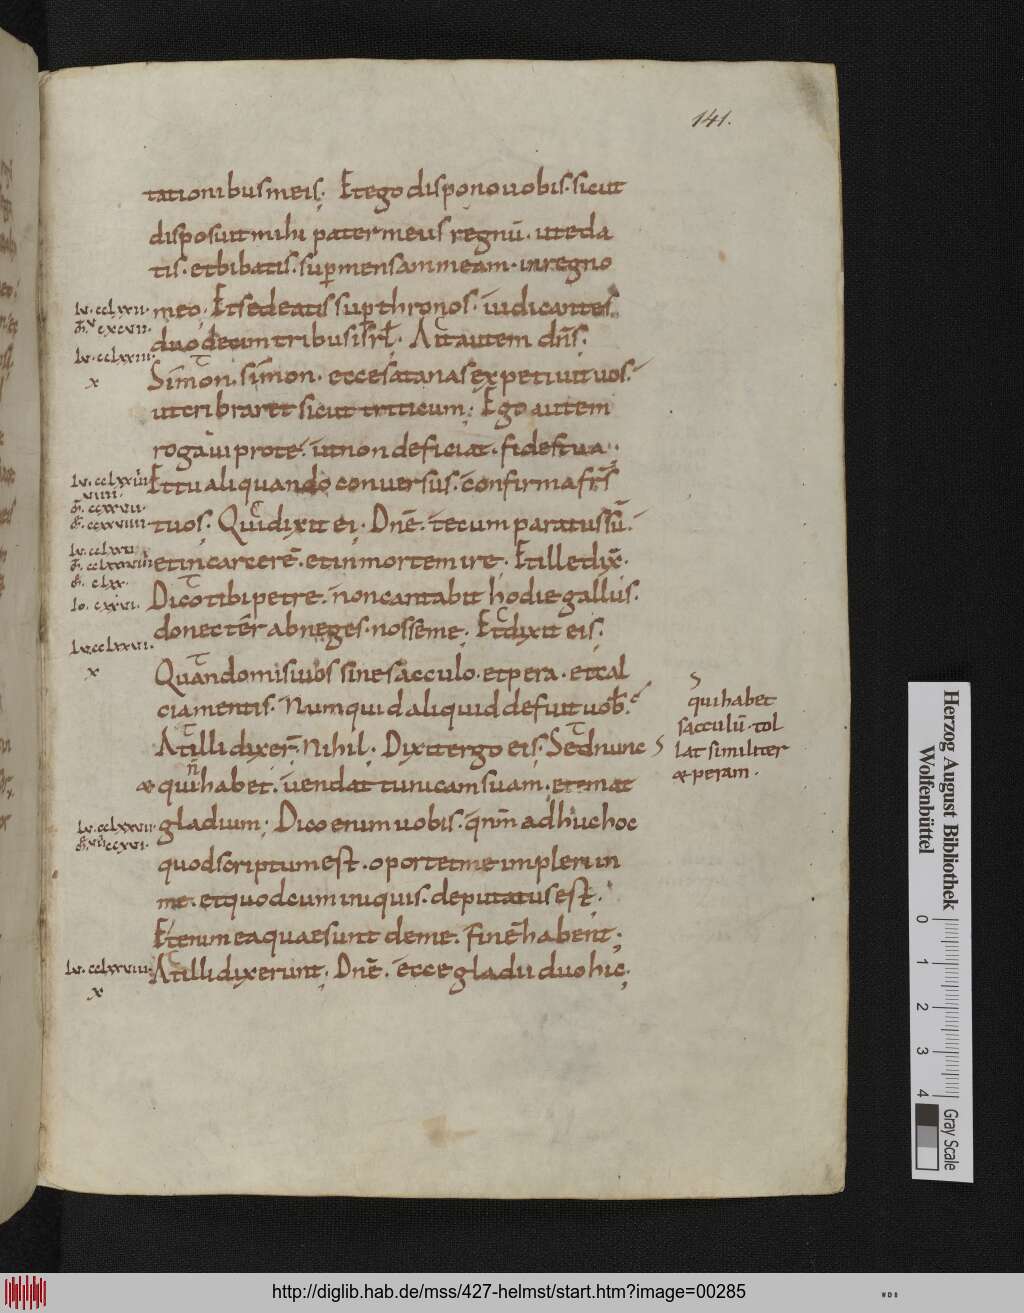 141.
tationibus meis; Et ego dispono uobis. sicut
disposuit mihi pater meus regnū. ut eda
tis. et bibatis. sup mensam meam. in regno
meo; Et sedeatis sup thronos. iudicantes
duodecim tribus isrl; Ait autem dn̄s;
Simon. simon. ecce satanas expetiuit uos.
ut cribraret sicut triticum; Ego autem
rogaui pro te. ut non deficiat. fides tua;
Et tu aliquando conuersus. confirma frs̄
tuos; Qui dixit ei. Dn̄e. tecum paratus sū.
et in carcerē. et in mortem ire; Et ille dix̄.
Dico tibi petre. non cantabit hodie gallus.
donec ter abneges. nosse me; Et dixit eis;
Quando misi uos sine sacculo. et pera. et cal
ciamentis. Numquid aliquid defuit uob.
At illi dixer̄. Nihil; Dixit ergo eis; Sed nunc
& qui n̄ habet. uendat tunicam suam. et emat
gladium; Dico enim uobis. qn̄m adhuc hoc
quod scriptum est. oportet me impleri in
me. et quod cum iniquis. deputatus est.
Etenim ea quae sunt de me. finē habent;
At illi dixerunt; Dn̄e. ecce gladii duo hic;
qui habet
sacculū. tol
lat similiter
& peram.
lv. cclxxii
lv. cclxxiii
x
lv. cclxxvi.
x
lv. cclxxvii
lv. cclxxviii
x
Herzog August Bibliothek
Wolfenbüttel
0 1 2 3 4
Gray Scale
http://diglib.hab.de/mss/427-helmst/start.htm?image=00285